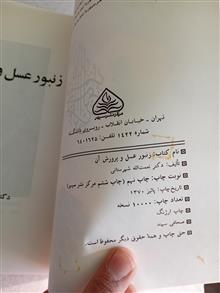 زنبور عسل و
تهران - خیابان انقلاب - روبروی دانشگاه
شماره ۱۴۲۲ تلفن: ۶۴۰۱۶۲۵
نام کتاب: زنبور عسل و پرورش آن
تألیف: دکتر نعمت‌الله شهرستانی
نوبت چاپ: چاپ نهم (چاپ ششم مرکز نشر سپهر)
تاریخ چاپ: پائیز ۱۳۷۰
تعداد چاپ: ۱۰۰۰۰ نسخه
چاپ: ارژنگ
صحافی: سپید
حق چاپ و همهٔ حقوق دیگر محفوظ است.
دک